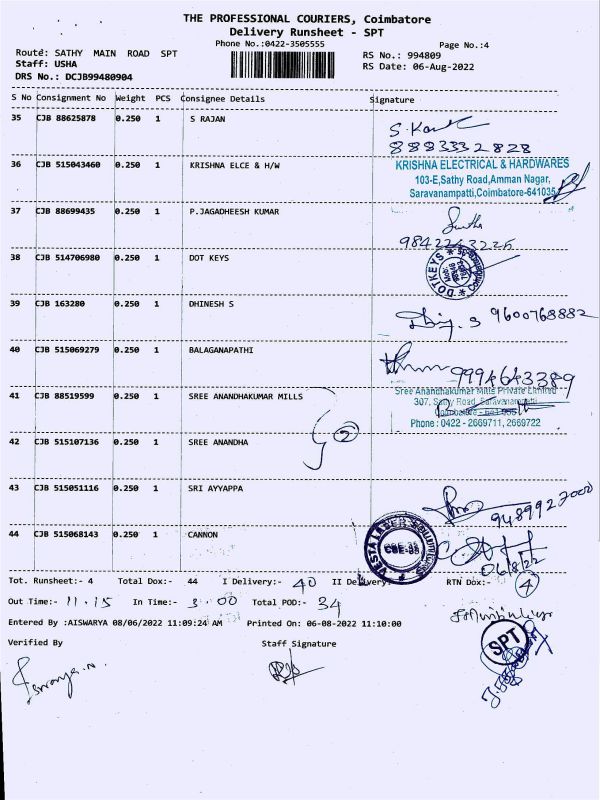 THE PROFESSIONAL COURIERS, Coimbatore
Delivery Runsheet - SPT
Phone No.:0422-3505555
Page No.:4
Route: SATHY MAIN ROAD SPT
RS No.: 994809
Staff: USHA
RS Date: 06-Aug-2022
DRS No.: DCJB99480904
S No Consignment No Weight PCS Consignee Details Signature
35 CJB 88625878 0.250 1 S RAJAN
8893332828
36 CJB 515043460 0.250 1 KRISHNA ELCE & H/W
KRISHNA ELECTRICAL & HARDWARES
103-E,Sathy Road,Amman Nagar,
Saravanampatti,Coimbatore-641035
37 CJB 88699435 0.250 1 P.JAGADHEESH KUMAR
38 CJB 514706980 0.250 1 DOT KEYS
DOTKEYS
39 CJB 163280 0.250 1 DHINESH S
9600768882
40 CJB 515069279 0.250 1 BALAGANAPATHI
9994643389
41 CJB 88519599 0.250 1 SREE ANANDHAKUMAR MILLS
Sree Anandhakumar Mills Private Limited
307, Sathy Road, Saravanampatti
Coimbatore - 641 035
Phone : 0422 - 2669711, 2669722
2
42 CJB 515107136 0.250 1 SREE ANANDHA
43 CJB 515051116 0.250 1 SRI AYYAPPA
9489927000
44 CJB 515068143 0.250 1 CANNON
CBE-35
06/8/22
Tot. Runsheet:- 4 Total Dox:- 44 I Delivery:- 40 II Delivery:- RTN Dox:- 4
Out Time:- 11.15 In Time:- 3.00 Total POD:- 34
Entered By :AISWARYA 08/06/2022 11:09:24 AM Printed On: 06-08-2022 11:10:00
Verified By Staff Signature
SPT